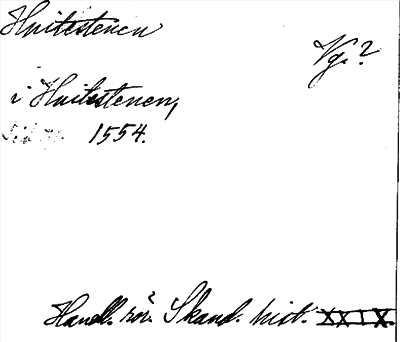 Huitestenen
Vg.?
i Huitestenen,
1554.
Handl. rör. Skand. hist. XXIX.